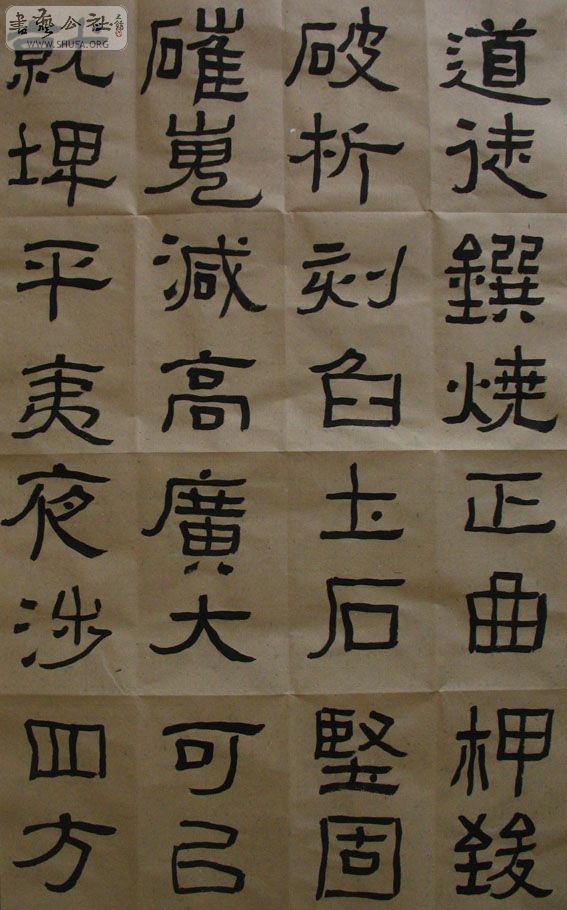 書藝公社
WWW.SHUFA.ORG
道徒鐉燒
破析刻臽
磪嵬減高
就埤平夷
正曲柙致
圡石堅固
廣大可㠯
夜涉四方